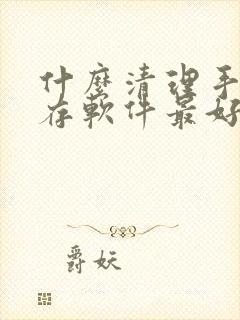 什麼清理手
存軟件最好
爵妖